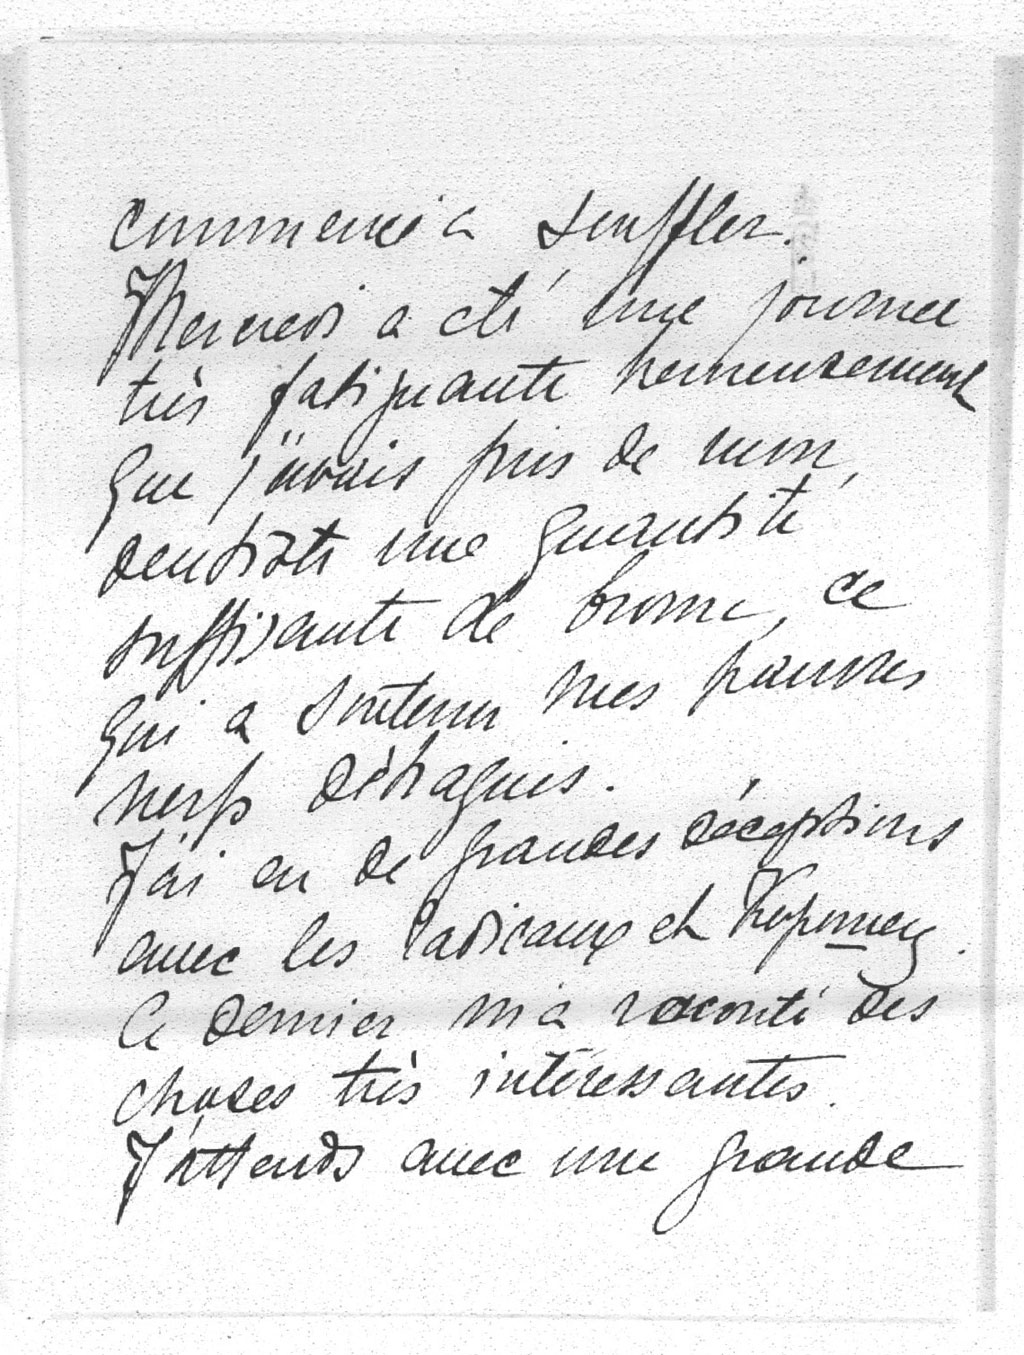 commencé à souffler.
Mercredi a été une journée
très fatiguante heureusement
que j'avais pris de mon
dentiste une quantité
suffisante de brome, ce
qui a soutenu mes pauvres
nerfs détraqués.
J'ai eu de grandes déceptions
avec les radicaux et
Ce dernier m'a raconté des
choses très intéressantes.
J'attends avec une grande